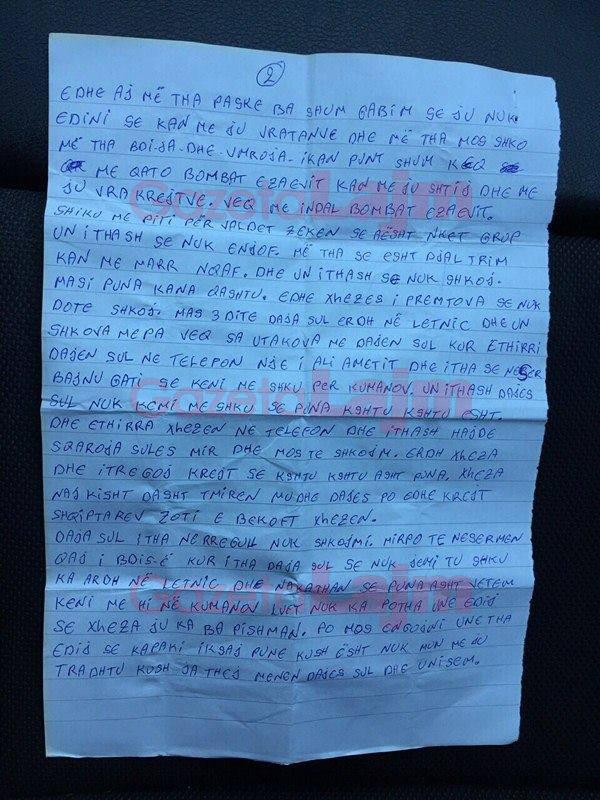 2
EDHE AJ MË THA PASKE BA SHUM GABIM SE JU NUK
EDINI SE KAN ME JU VRATANVE DHE MË THA MOS SHKO
MË THA BDI-JA-DHE-VMROJA-IKAN PUNT SHUM KEQ
ME QATO BOMBAT EZAEVIT KAN ME JU SHTIJ DHE ME
JU VRA KREJTVE. VEQ ME INDAL BOMBAT EZAEVIT.
SHIKU ME PITI PËR VALDET ZEKEN SE AËSHT NKET GRUP
UN ITHASH SE NUK ENJOF. MË THA SE ESHT DJAL TRIM
KAN ME MARR NQAF. DHE UN ITHASH SE NUK SHKOJ.
MASI PUNA KANA QASHTU. EDHE XHEZES I PREMTOVA SE NUK
DOTE SHKOJ. MAS 3 DITE DAJA SUL ERDH NË LETNIC DHE UN
SHKOVA MEPA VEQ SA UTAKOVA ME DAJEN SUL KUR ETHIRRI
DAJEN SUL NE TELEFON NJE I ALI AMETIT DHE ITHA SE NESER
BAJNU GATI SE KENI ME SHKU PER KUMANOV. UN ITHASH DAJES
SUL NUK KEMI ME SHKU SE PUNA KSHTU KSHTU ESHT.
DHE ETHIRRA XHEZEN NE TELEFON DHE ITHASH HAJDE
SQAROJA SULES MIR DHE MOS TE SHKOJM. ERDH XHEZA
DHE ITREGOJ KREJT SE KSHTU KSHTU ASHT PUNA. XHEZA
NAJ KISHT DASHT TMIREN MUDHE DAJES PO EDHE KREJT
SHQIPTAREV ZOTI E BEKOFT XHEZEN.
DAJA SUL ITHA NERREGULL NUK SHKOJMI. MIRPO TE NESERMEN
QAJ I BDIS-Ë KUR ITHA DAJA SUL SE NUK JEMI TU SHKU
KA ARDH NË LETNIC DHE NAKATHAN SE PUNA ASHT VETEM
KENI ME HI NË KUMANOV LUFT NUK KA POTHA UNE EDIJ
SE XHEZA JU KA BA PISHMAN. PO MOS ENGOJNI UNE THA
EDIJ SE KAPAKI IKSAJ PUNE KUSH ËSHT NUK MUN ME JU
TRADHTU KUSH JA THEJ MENEN DAJES SUL DHE UNISEM.
GazetaLajm
GazetaLajm
GazetaLajm